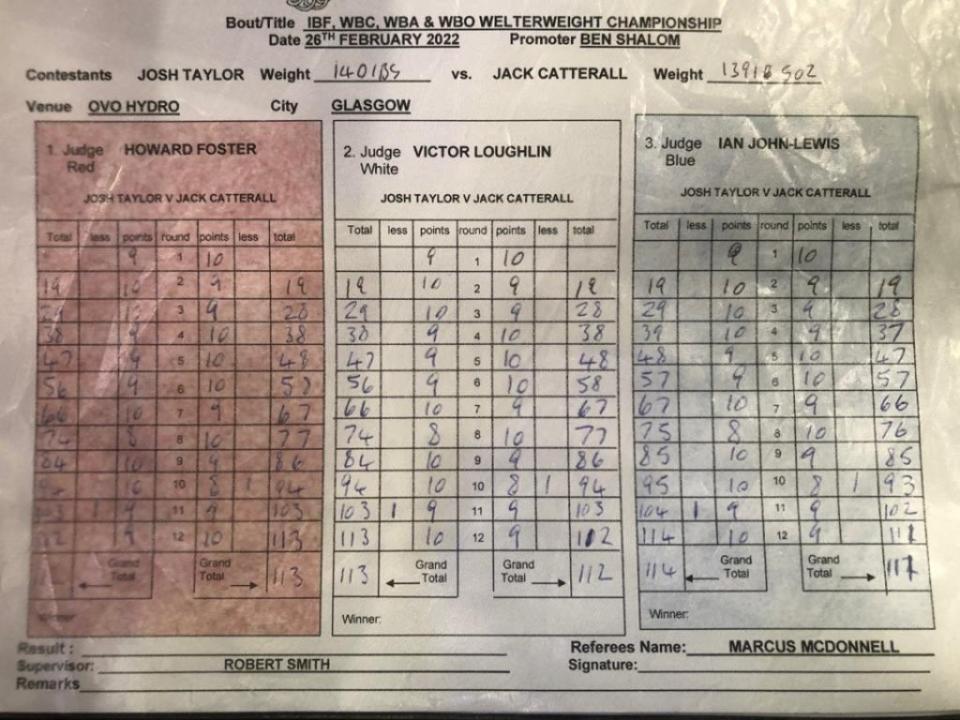 Bout/Title IBF, WBC, WBA & WBO WELTERWEIGHT CHAMPIONSHIP
Date 26TH FEBRUARY 2022 Promoter BEN SHALOM
Contestants JOSH TAYLOR Weight 140lBS vs. JACK CATTERALL Weight 139lB 5OZ
Venue OVO HYDRO City GLASGOW
1. Judge HOWARD FOSTER
Red
JOSH TAYLOR V JACK CATTERALL
Total less points round points less total
9 1 10
19 10 2 9 19
29 10 3 9 28
38 9 4 10 38
47 9 5 10 48
56 9 6 10 58
66 10 7 9 67
74 8 8 10 77
84 10 9 9 86
94 10 10 8 1 94
103 1 9 11 9 103
112 9 12 10 113
Grand Grand
Total Total 113
Winner:
2. Judge VICTOR LOUGHLIN
White
JOSH TAYLOR V JACK CATTERALL
Total less points round points less total
9 1 10
19 10 2 9 19
29 10 3 9 28
38 9 4 10 38
47 9 5 10 48
56 9 6 10 58
66 10 7 9 67
74 8 8 10 77
84 10 9 9 86
94 10 10 8 1 94
103 1 9 11 9 103
113 10 12 9 112
Grand Grand
113 Total Total 112
Winner:
3. Judge IAN JOHN-LEWIS
Blue
JOSH TAYLOR V JACK CATTERALL
Total less points round points less total
9 1 10
19 10 2 9 19
29 10 3 9 28
39 10 4 9 37
48 9 5 10 47
57 9 6 10 57
67 10 7 9 66
75 8 8 10 76
85 10 9 9 85
95 10 10 8 1 93
104 1 9 11 9 102
114 10 12 9 111
Grand Grand
114 Total Total 111
Winner:
Result :
Supervisor: ROBERT SMITH
Remarks
Referees Name: MARCUS MCDONNELL
Signature: